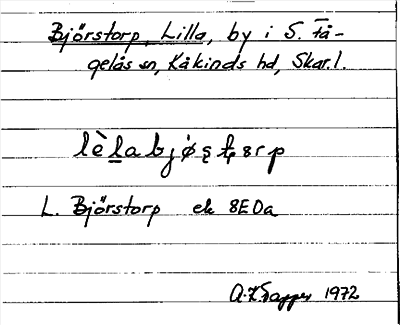 Björstorp, Lilla, by i S. Få-
gelås sn, Kåkinds hd, Skar.l.
lèlabjøstørp
L. Björstorp ek 8E0a
1972